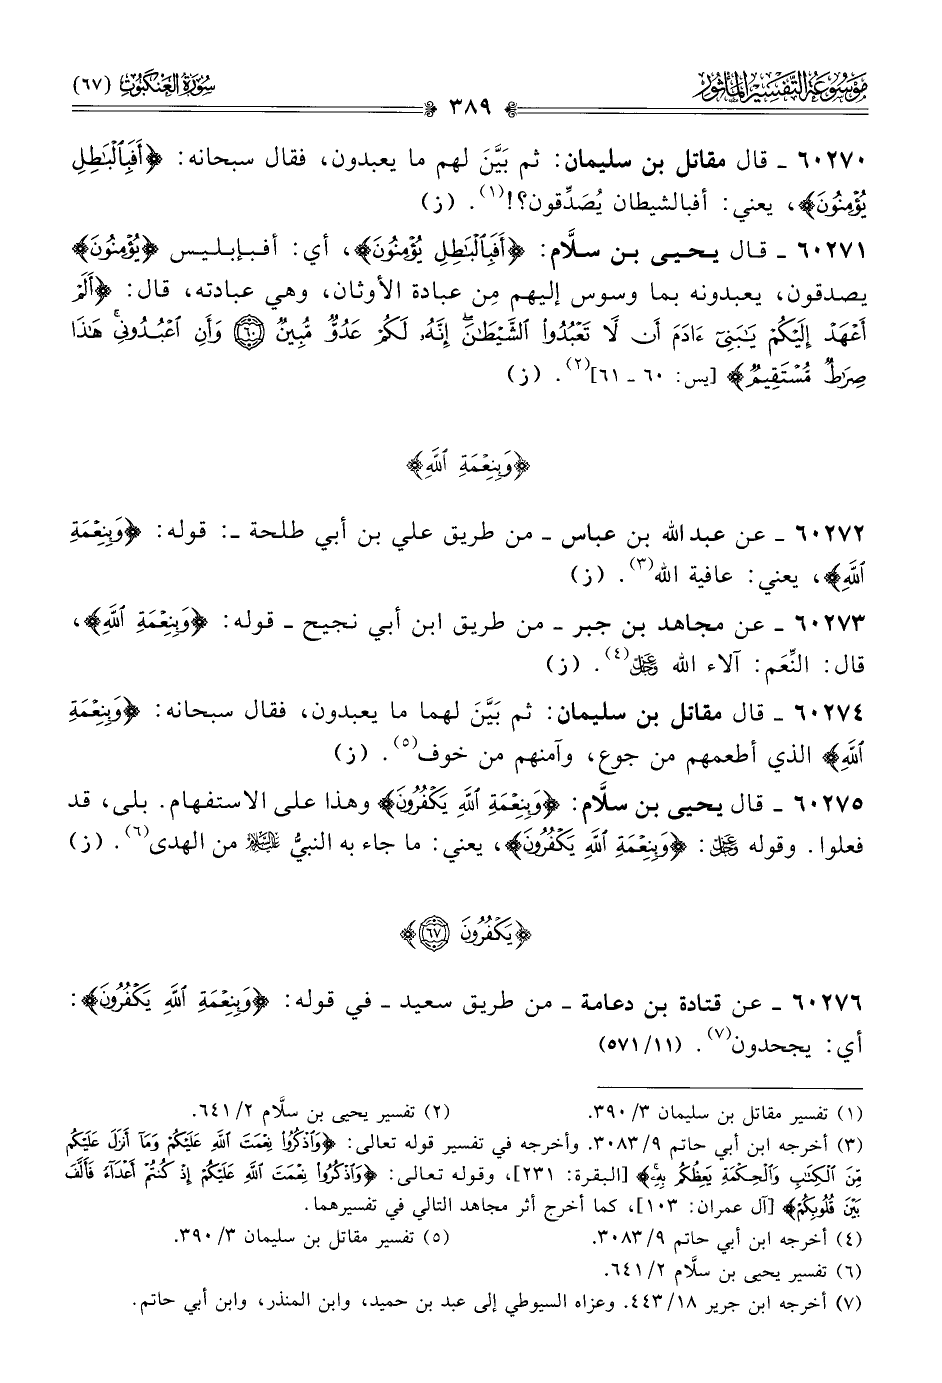 موسوعة التفسير المأثور
سورة العنكبوت (٦٧)
٣٨٩
٦٠٢٧٠ ـ قال مقاتل بن سليمان: ثم بَيَّنَ لهم ما يعبدون، فقال سبحانه: ﴿أَفَبِٱلْبَٰطِلِ
يُؤْمِنُونَ﴾، يعني: أفبالشيطان يُصَدِّقون؟!(١). (ز)
٦٠٢٧١ ـ قال يحيى بن سلَّام: ﴿أَفَبِٱلْبَٰطِلِ يُؤْمِنُونَ﴾، أي: أفبإبليس ﴿يُؤْمِنُونَ﴾
يصدقون، يعبدونه بما وسوس إليهم مِن عبادة الأوثان، وهي عبادته، قال: ﴿أَلَمْ
أَعْهَدْ إِلَيْكُمْ يَٰبَنِىٓ ءَادَمَ أَن لَّا تَعْبُدُوا۟ ٱلشَّيْطَٰنَ ۖ إِنَّهُۥ لَكُمْ عَدُوٌّ مُّبِينٌ ۝٦٠ وَأَنِ ٱعْبُدُونِى ۚ هَٰذَا
صِرَٰطٌ مُّسْتَقِيمٌ﴾ [يس: ٦٠ ـ ٦١](٢). (ز)
﴿وَبِنِعْمَةِ ٱللَّهِ﴾
٦٠٢٧٢ ـ عن عبد الله بن عباس ـ من طريق علي بن أبي طلحة ـ: قوله: ﴿وَبِنِعْمَةِ
ٱللَّهِ﴾، يعني: عافية الله(٣). (ز)
٦٠٢٧٣ ـ عن مجاهد بن جبر ـ من طريق ابن أبي نجيح ـ قوله: ﴿وَبِنِعْمَةِ ٱللَّهِ﴾،
قال: النِّعَم: آلاء الله ﷿(٤). (ز)
٦٠٢٧٤ ـ قال مقاتل بن سليمان: ثم بَيَّنَ لهما ما يعبدون، فقال سبحانه: ﴿وَبِنِعْمَةِ
ٱللَّهِ﴾ الذي أطعمهم من جوع، وآمنهم من خوف(٥). (ز)
٦٠٢٧٥ ـ قال يحيى بن سلَّام: ﴿وَبِنِعْمَةِ ٱللَّهِ يَكْفُرُونَ﴾ وهذا على الاستفهام. بلى، قد
فعلوا. وقوله ﷿: ﴿وَبِنِعْمَةِ ٱللَّهِ يَكْفُرُونَ﴾، يعني: ما جاء به النبيُّ عليه السلام من الهدى(٦). (ز)
﴿يَكْفُرُونَ ۝٦٧﴾
٦٠٢٧٦ ـ عن قتادة بن دعامة ـ من طريق سعيد ـ في قوله: ﴿وَبِنِعْمَةِ ٱللَّهِ يَكْفُرُونَ﴾:
أي: يجحدون(٧). (٥٧١/١١)
(١) تفسير مقاتل بن سليمان ٣/ ٣٩٠. (٢) تفسير يحيى بن سلَّام ٢/ ٦٤١.
(٣) أخرجه ابن أبي حاتم ٩/ ٣٠٨٣. وأخرجه في تفسير قوله تعالى: ﴿وَٱذْكُرُوا۟ نِعْمَتَ ٱللَّهِ عَلَيْكُمْ وَمَآ أَنزَلَ عَلَيْكُم
مِّنَ ٱلْكِتَٰبِ وَٱلْحِكْمَةِ يَعِظُكُم بِهِۦ﴾ [البقرة: ٢٣١]، وقوله تعالى: ﴿وَٱذْكُرُوا۟ نِعْمَتَ ٱللَّهِ عَلَيْكُمْ إِذْ كُنتُمْ أَعْدَآءً فَأَلَّفَ
بَيْنَ قُلُوبِكُمْ﴾ [آل عمران: ١٠٣]، كما أخرج أثر مجاهد التالي في تفسيرهما.
(٤) أخرجه ابن أبي حاتم ٩/ ٣٠٨٣. (٥) تفسير مقاتل بن سليمان ٣/ ٣٩٠.
(٦) تفسير يحيى بن سلَّام ٢/ ٦٤١.
(٧) أخرجه ابن جرير ١٨/ ٤٤٣. وعزاه السيوطي إلى عبد بن حميد، وابن المنذر، وابن أبي حاتم.